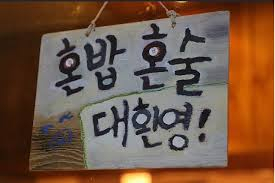 혼밥 혼술
대환영!